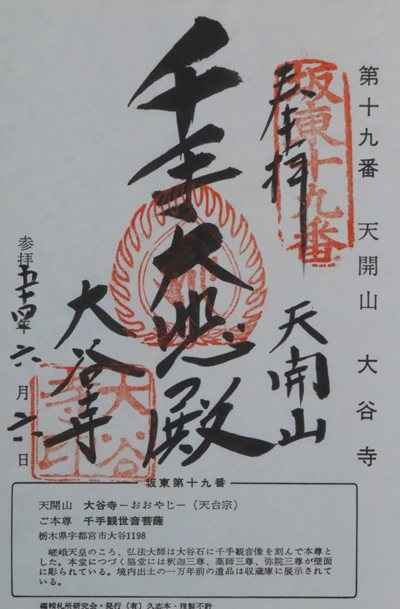 第十九番 天開山 大谷寺
坂東十九番
奉拝
天開山
千手大悲殿
大谷寺
参拝 五十四年 六月 六日
坂東第十九番
天開山 大谷寺―おおやじ―(天台宗)
ご本尊 千手観世音菩薩
栃木県宇都宮市大谷1198
嵯峨天皇のころ、弘法大師は大谷石に千手観音像を刻んで本尊と
した。本堂につづく脇堂には釈迦三尊、薬師三尊、弥陀三尊が壁面
に彫られている。境内出土の一万年前の遺品は収蔵庫に展示されて
いる。
編輯札所研究会・発行(有)久志本・複製不許